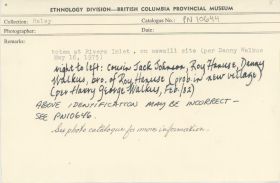 ETHNOLOGY DIVISION—BRITISH COLUMBIA PROVINCIAL MUSEUM
Collection: Haley Catalogue No.: PN 10644
Photographer: Date:
Remarks:
totem at Rivers Inlet, on sawmill site (per Danny Walkus
May 16, 1975)
right to left: Cousin Jack Johnson, Roy Hanuse, Danny
Walkus, bro. of Roy Hanuse (prob in new village)
(per Harry George Walkus, Feb/82)
ABOVE IDENTIFICATION MAY BE INCORRECT —
SEE PN10696.
See photo catalogue for more information.